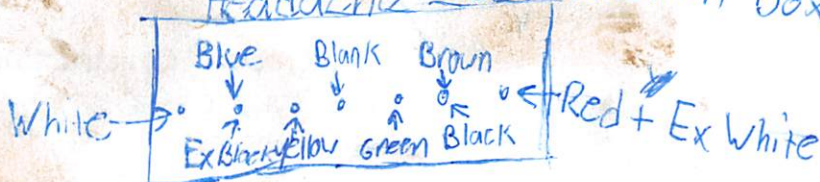 Box
Blue Blank Brown
White Red + Ex White
Ex Black Yellow Green Black